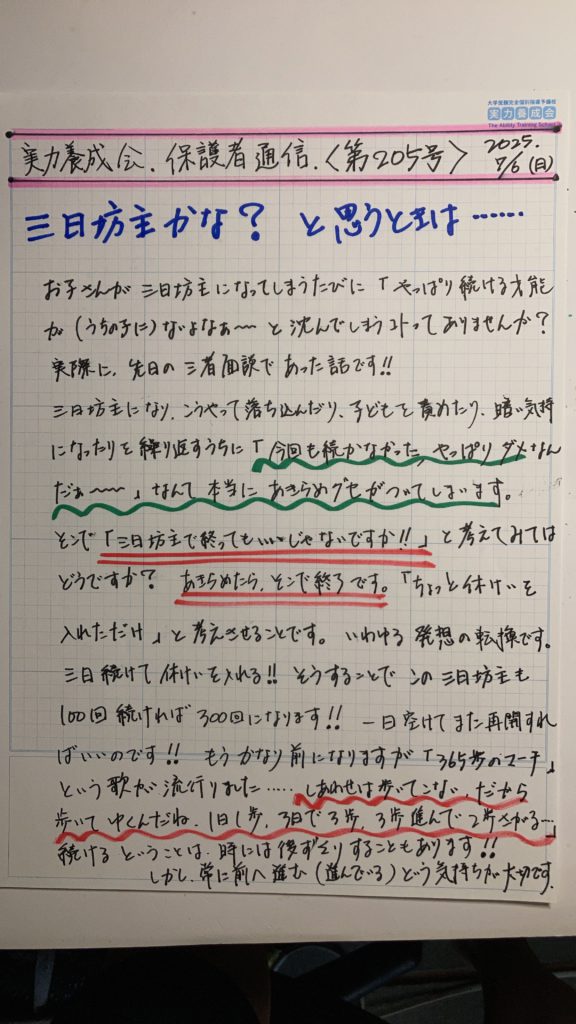 大学受験完全個別指導予備校
実力養成会
The Ability Training School
実力養成会.保護者通信.〈第205号〉
2025.
7/6(日)
三日坊主かな? と思うときは……
お子さんが 三日坊主になってしまうたびに「やっぱり続ける才能
が(うちの子に)ないよなぁ〜 と沈んでしまうコトってありませんか?
実際に、先日の三者面談であった話です!!
三日坊主になり、こうやって落ち込んだり、子どもを責めたり、暗い気持
になったりを繰り返すうちに「今回も続かなかった、やっぱりダメなん
だぁ〜〜」なんて本当にあきらめグセがついてしまいます。
そこで「三日坊主で終ってもいいじゃないですか!!」と考えてみては
どうですか? あきらめたら、そこで終了です。「ちょっと休けいを
入れただけ」と考えさせることです。いわゆる発想の転換です。
三日続けて休けいを入れる!! そうすることでこの三日坊主も
100回続ければ300回になります!! 一日空けてまた再開すれ
ばいいのです!! もうかなり前になりますが「365歩のマーチ」
という歌が流行りました……しあわせは歩いてこない、だから
歩いてゆくんだね、1日1歩、3日で3歩、3歩進んで2歩さがる…」
続けるということは、時には後ずさりすることもあります!!
しかし、常に前へ進む(進んでいる)という気持ちが大切です.